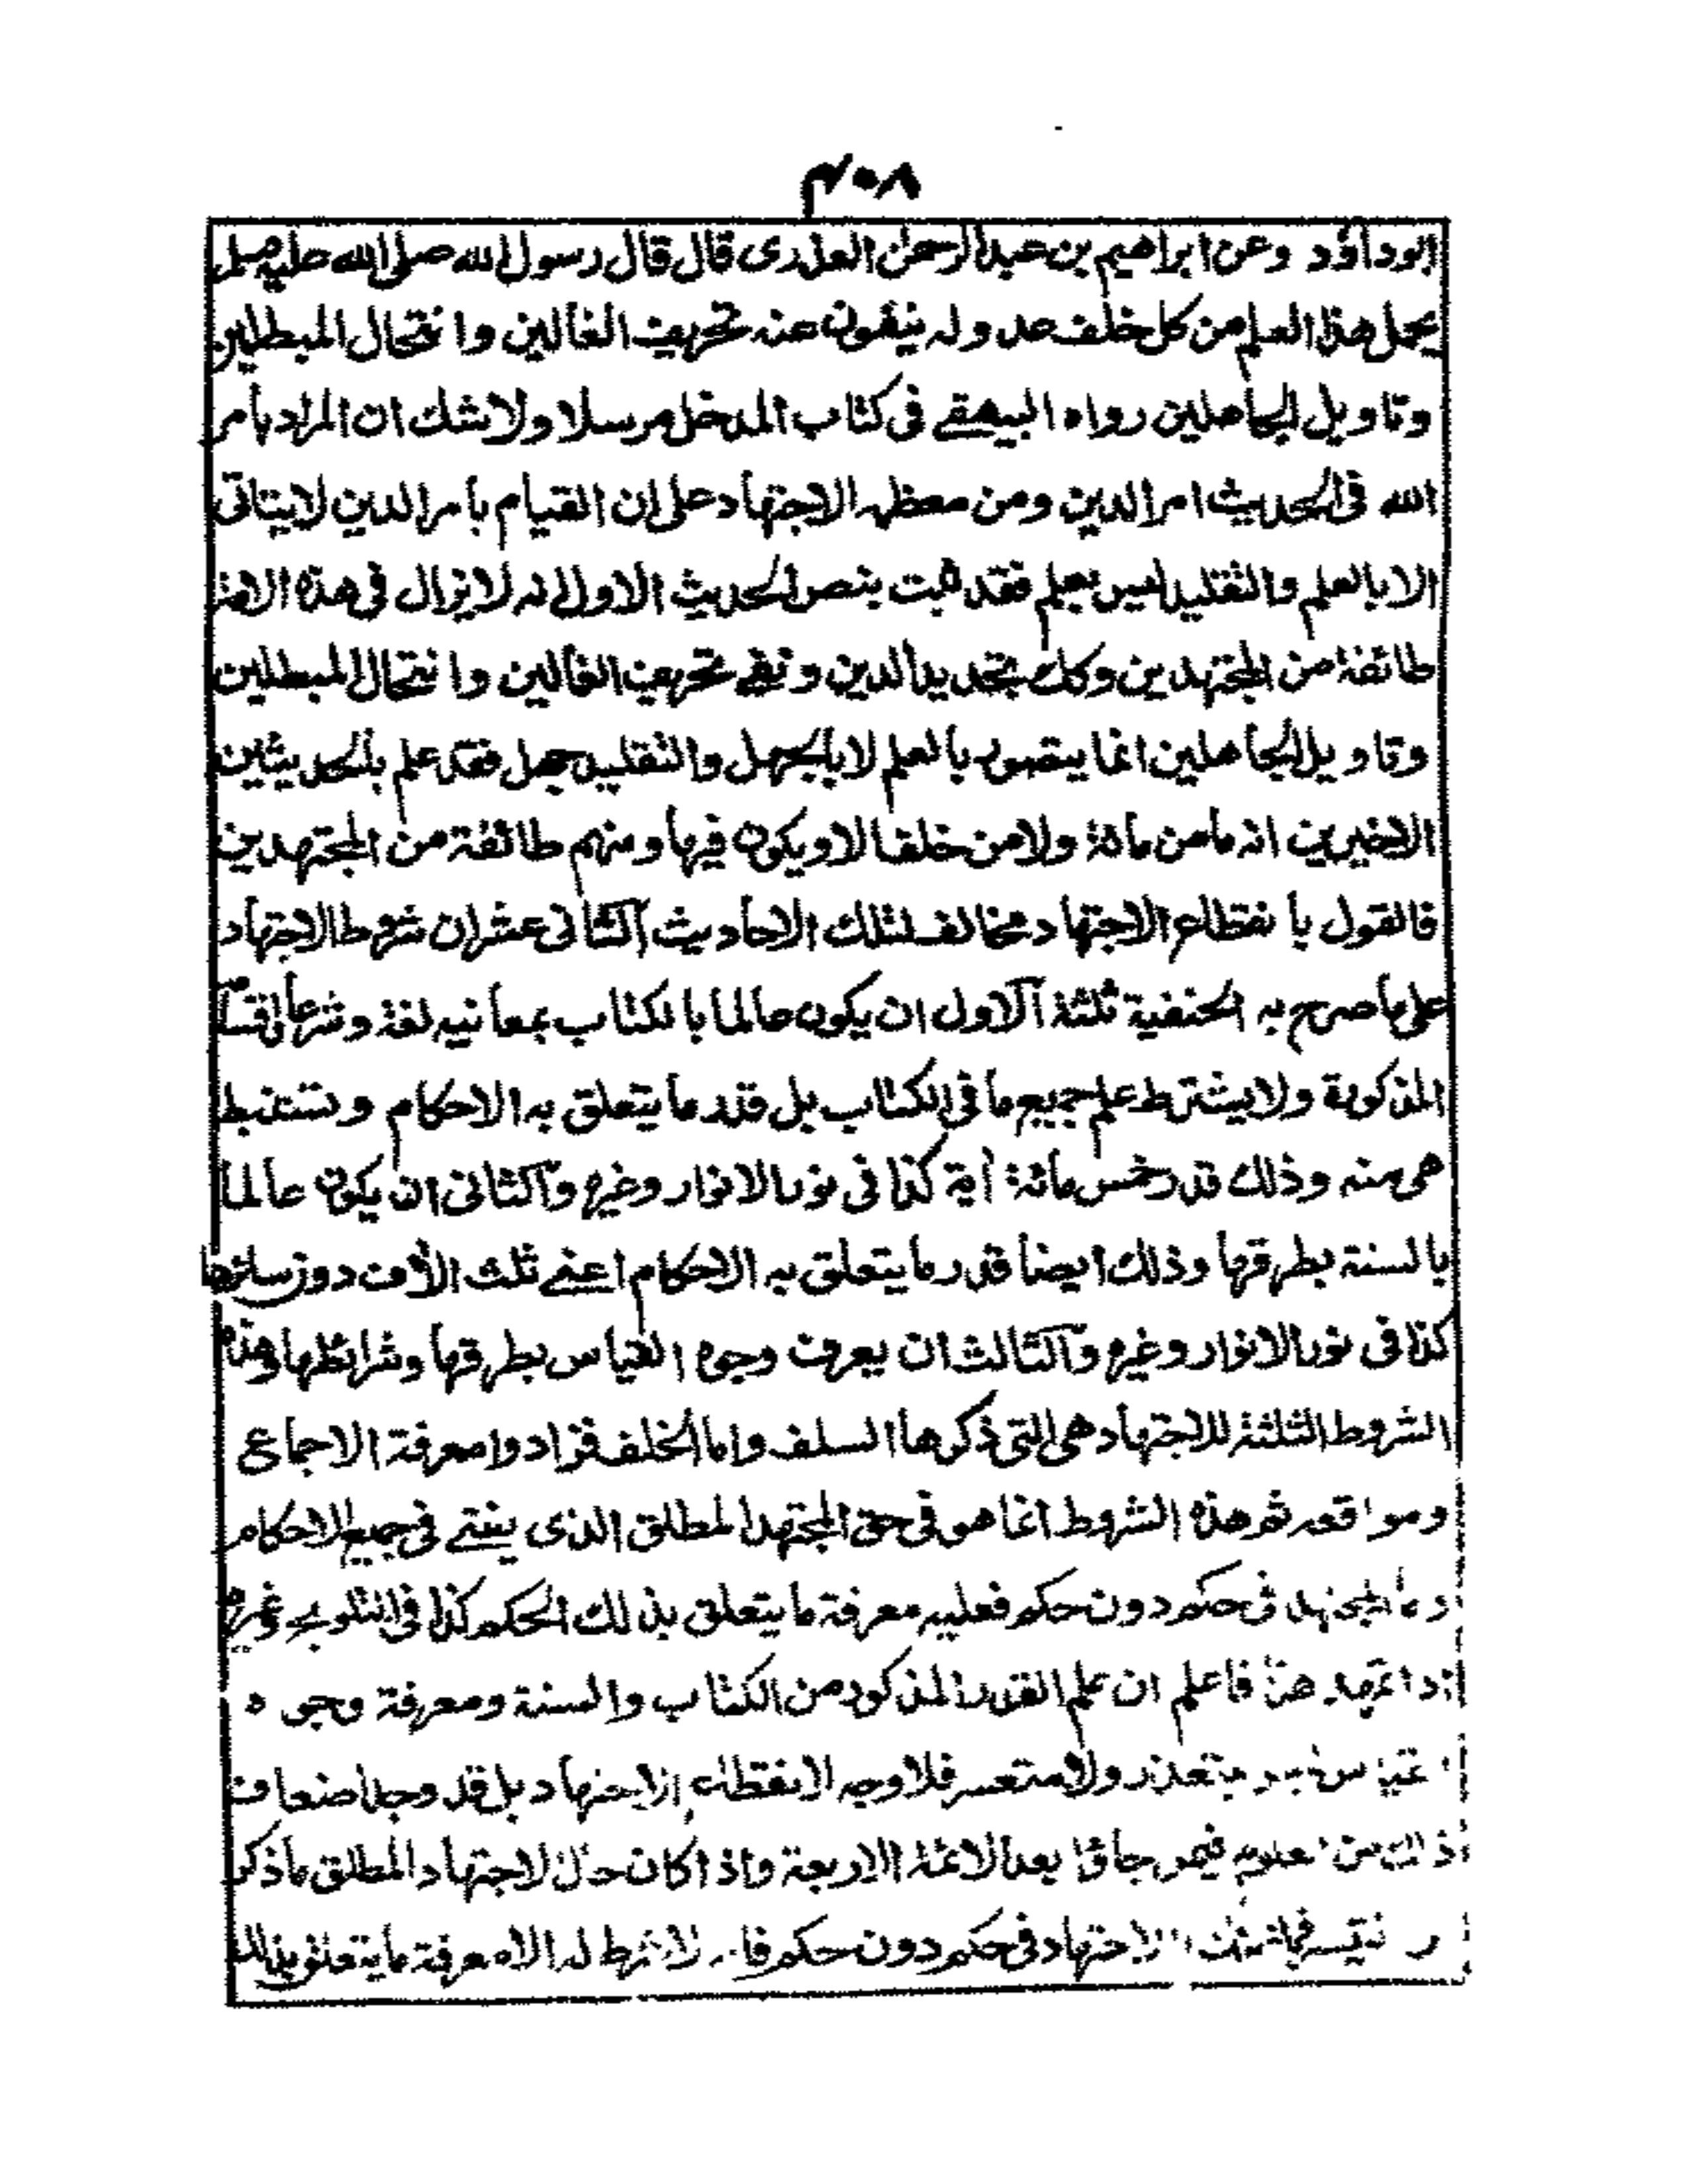 ٤٠٨
ابوداؤد وعن ابراهيم بن عبدالرحمن العذرى قال قال رسول الله صلى الله عليه وسلم
يحمل هذا العلم من كل خلف عدوله ينفون عنه تحريف الغالين وانتحال المبطلين
وتاويل الجاهلين رواه البيهقے فى كتاب المدخل مرسلا ولاشك ان المراد بأمر
الله فى الحديث امر الدين ومن معظمه الاجتهاد على ان القيام بأمر الدين لايتاتى
الا بالعلم والتقليد ليس بعلم فقد ثبت بنص الحديث الاول انه لايزال فى هذه الامة
طائفة من المجتهدين وكذا تجديد الدين ونفے تحريف الغالين وانتحال المبطلين
وتاويل الجاهلين انما يتصور بالعلم لا بالجهل والتقليد جهل فقد علم بالحديثين
الاخيرين انه مامن مائة ولامن خلف الا ويكون فيها ومنهم طائفة من المجتهدين
فالقول بانقطاع الاجتهاد مخالف لتلك الاحاديث الثانى عشر ان شروط الاجتهاد
على ماصرح به الحنفية ثلثة الاول ان يكون عالما بالكتاب بمعانيه لغة وشرعا واقسامه
المذكورة ولايشترط علم جميع مافى الكتاب بل قدر مايتعلق به الاحكام وتستنبط
هى منه وذلك قدر خمس مائة اٰية كذا فى نور الانوار وغيره والثانى ان يكون عالما
بالسنة بطرقها وذلك ايضا قدر مايتعلق به الاحكام اعنے ثلث الاف دون سائرها
كذا فى نور الانوار وغيره والثالث ان يعرف وجوه القياس بطرقها وشرائطها وهذه
الشروط الثلثة للاجتهاد هى التى ذكرها السلف واما الخلف فزادوا معرفة الاجماع
ومواقعه ثم هذه الشروط انما هو فى حق المجتهد المطلق الذى يفتے فى جميع الاحكام
واما المجتهد فى حكم دون حكم فعليه معرفة ما يتعلق بذلك الحكم كذا فى التلويح وغيره
اذا تمهد هذا فاعلم ان علم القدر المذكور من الكتاب والسنة ومعرفة وجوه
القياس ليس بمتعذر ولا متعسر فلا وجه لانقطاع الاجتهاد بل قد وجد اضعاف
ذلك من العلوم فيمن جاؤا بعد الائمة الاربعة واذا كان حال الاجتهاد المطلق ماذكر
الاجتهاد فى حكم دون حكم لايشترط له الا معرفة مايتعلق بذلك